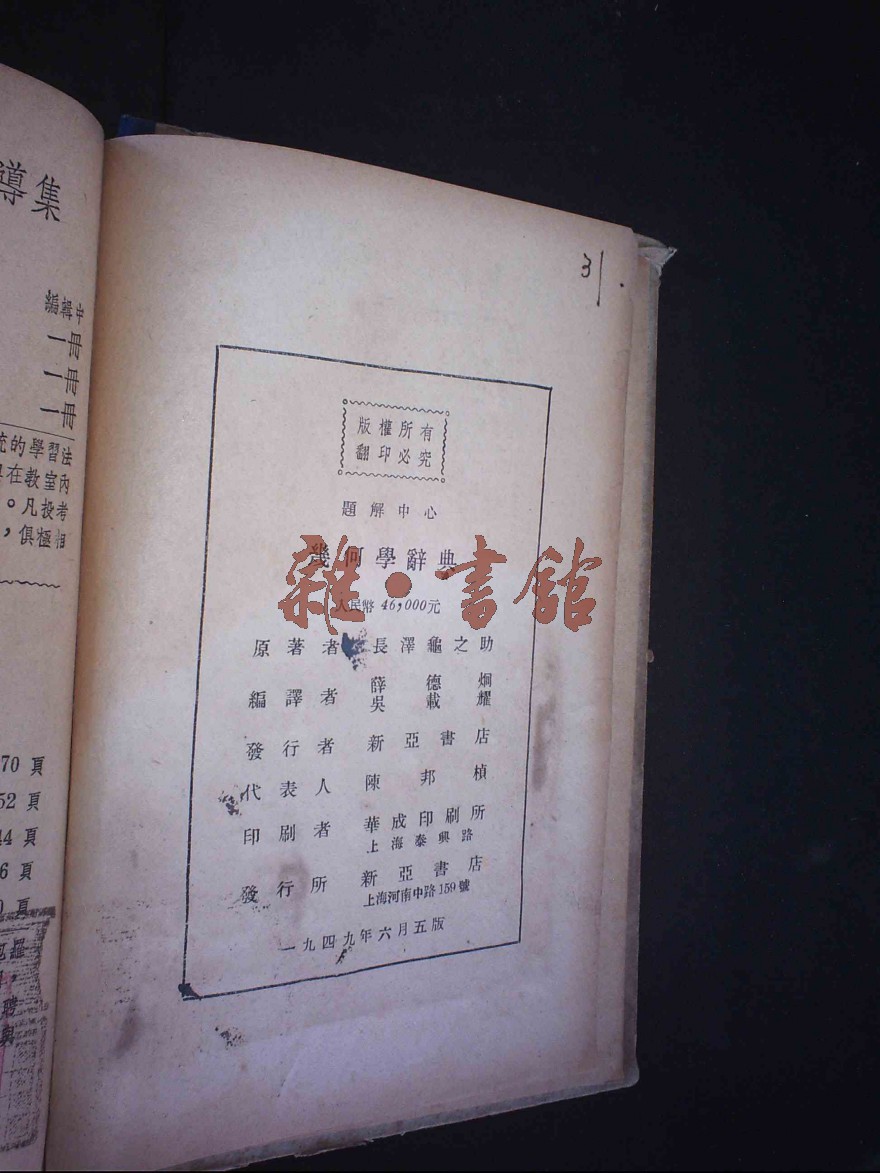 導集
編輯中
一冊
一冊
一冊
的學習法
在教室內
。凡投考
，俱極相
70 頁
52 頁
44 頁
6 頁
頁
31
版權所有
翻印必究
題解中心
幾何學辭典
人民幣 46,000元
原著者 長澤龜之助
編譯者 薛德炯
吳載耀
發行者 新亞書店
代表人 陳邦楨
印刷者 華成印刷所
上海泰興路
發行所 新亞書店
上海河南中路159號
一九四九年六月五版
雜·書館